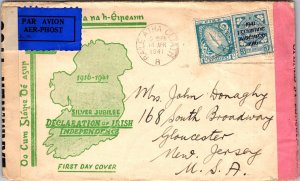 PAR AVION
AER-PHOST
na h-Éireann
Do Cum Glóire Dé agus
1916-1941
SILVER JUBILEE
DECLARATION OF IRISH
INDEPENDENCE
FIRST DAY COVER
1941
Mrs. John Donaghy
168 South Broadway
Gloucester
New Jersey
U.S.A.